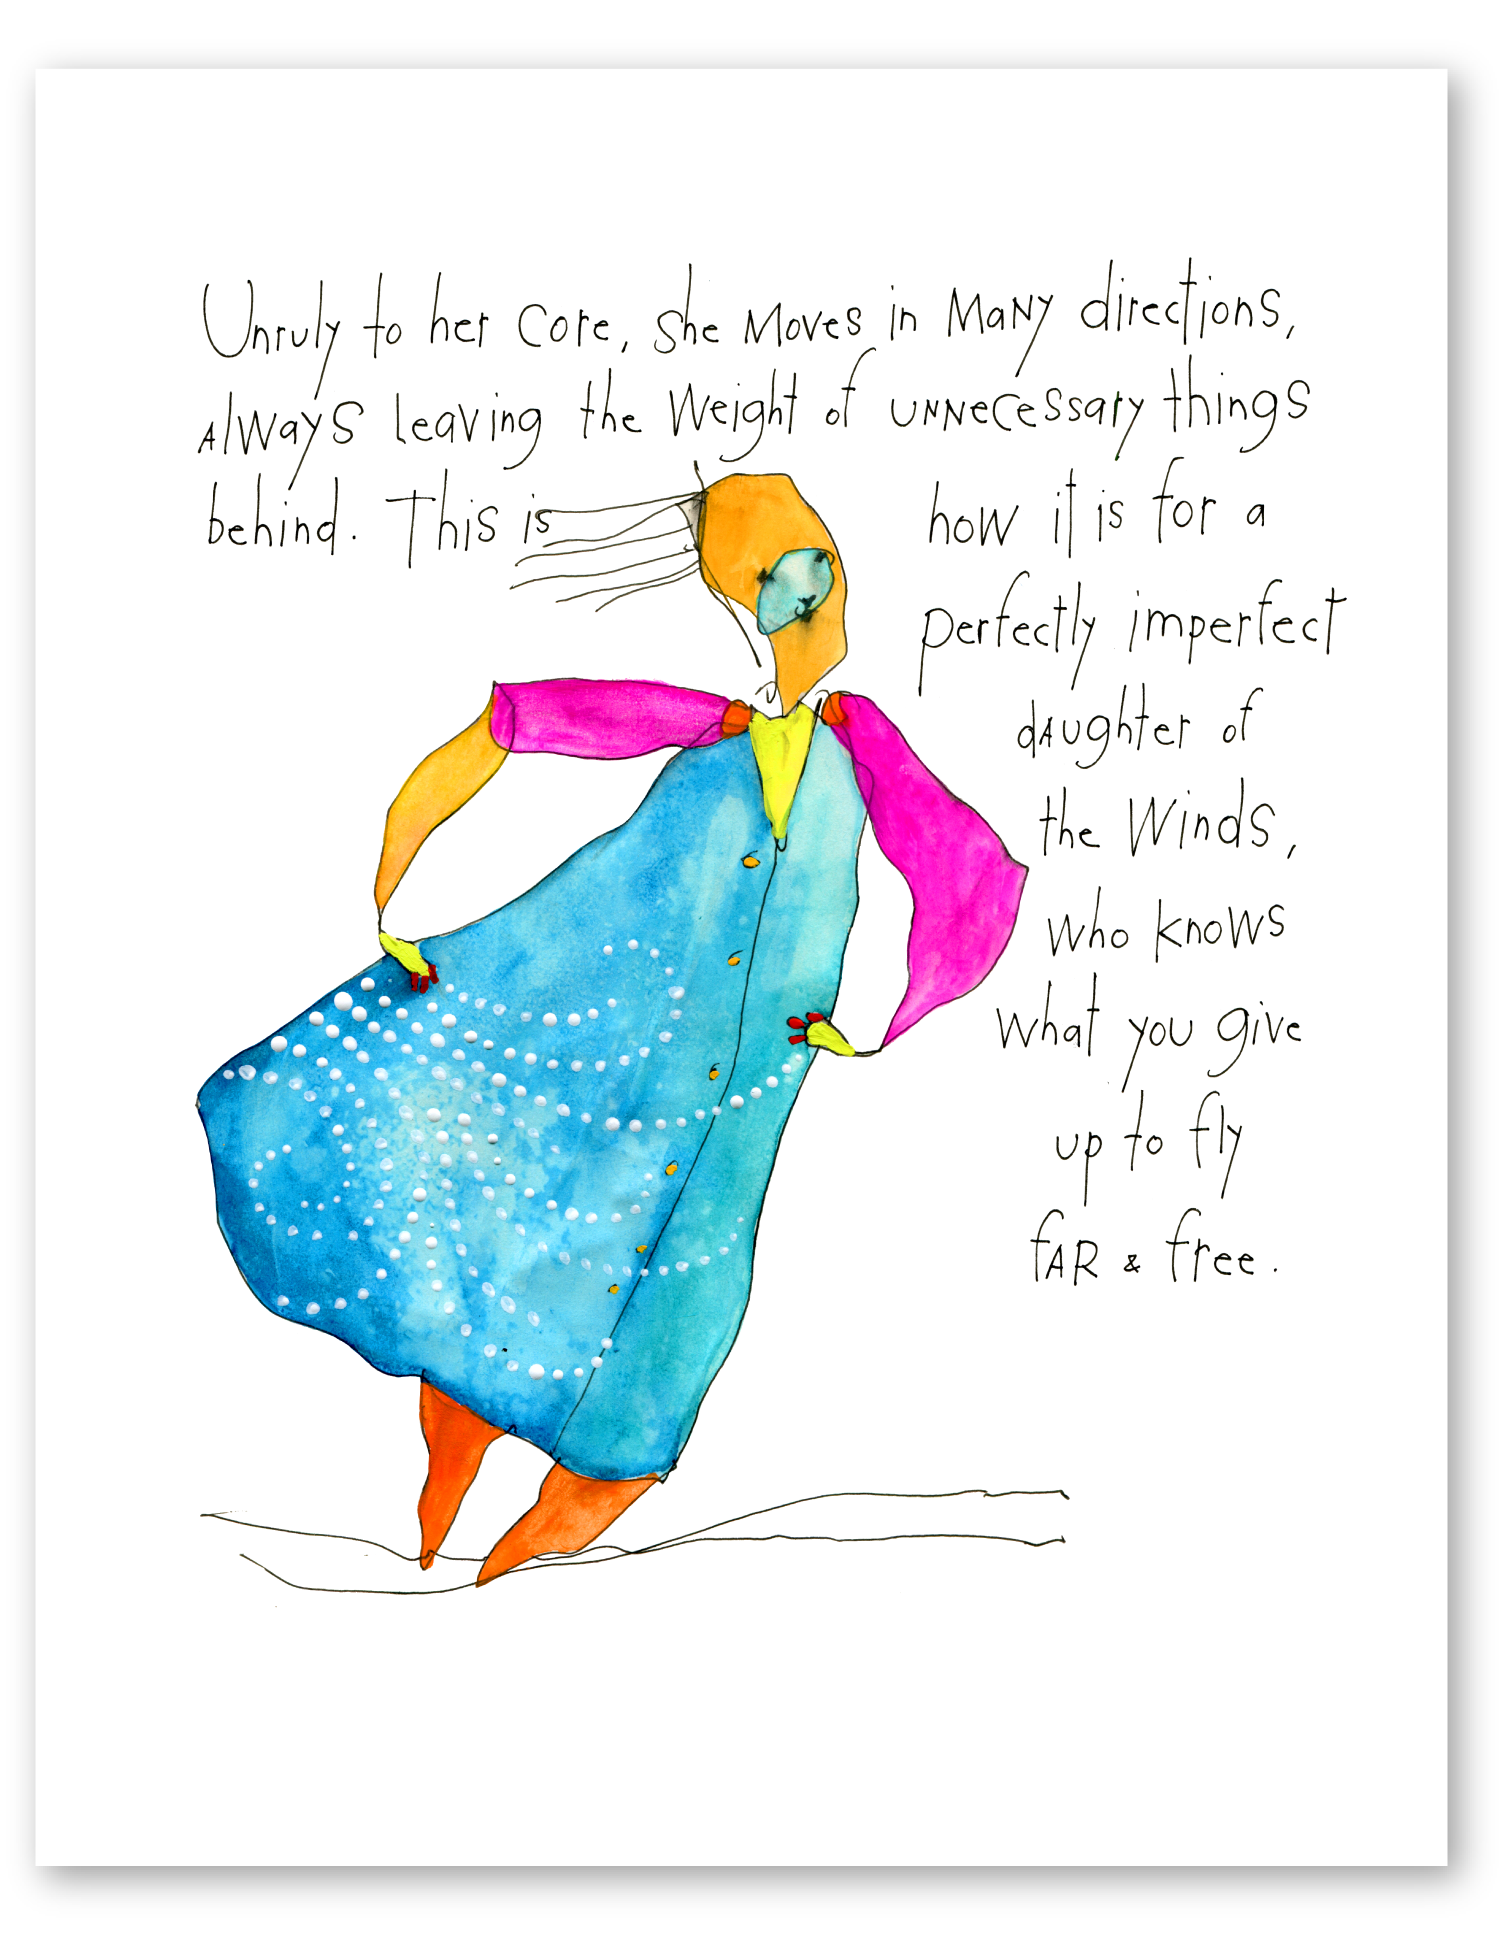 Unruly to her core, she moves in many directions,
always leaving the weight of unnecessary things
behind. This is how it is for a
perfectly imperfect
daughter of
the winds,
who knows
what you give
up to fly
far & free.